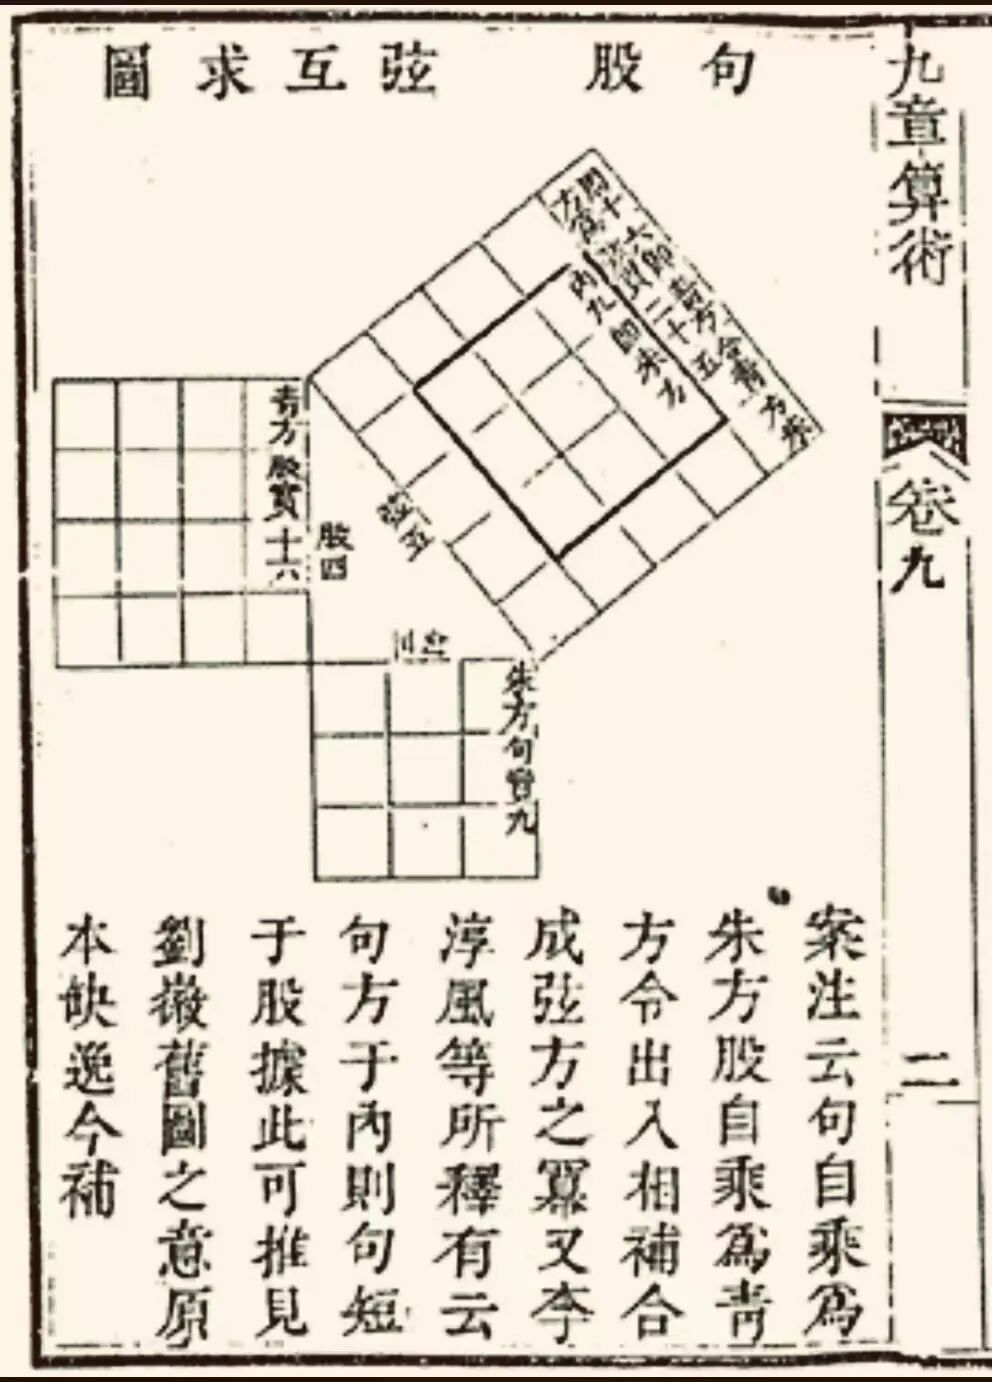 九章算術
卷九
二
句股 弦互求圖
十六即青方合青方朱
方爲弦實二十五
內九即朱方
弦五
股四
青方股實十六
句三
朱方句實九
案注云句自乘爲
朱方股自乘爲青
方令出入相補合
成弦方之冪又李
淳風等所釋有云
句方于內則句短
于股據此可推見
劉徽舊圖之意原
本缺逸今補